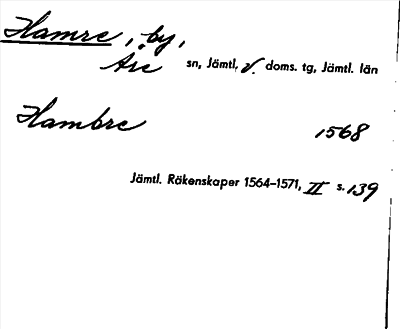 Hamre, by,
Åre sn, Jämtl. v. doms. tg, Jämtl. län
Hambre 1568
Jämtl. Räkenskaper 1564–1571, II s. 139